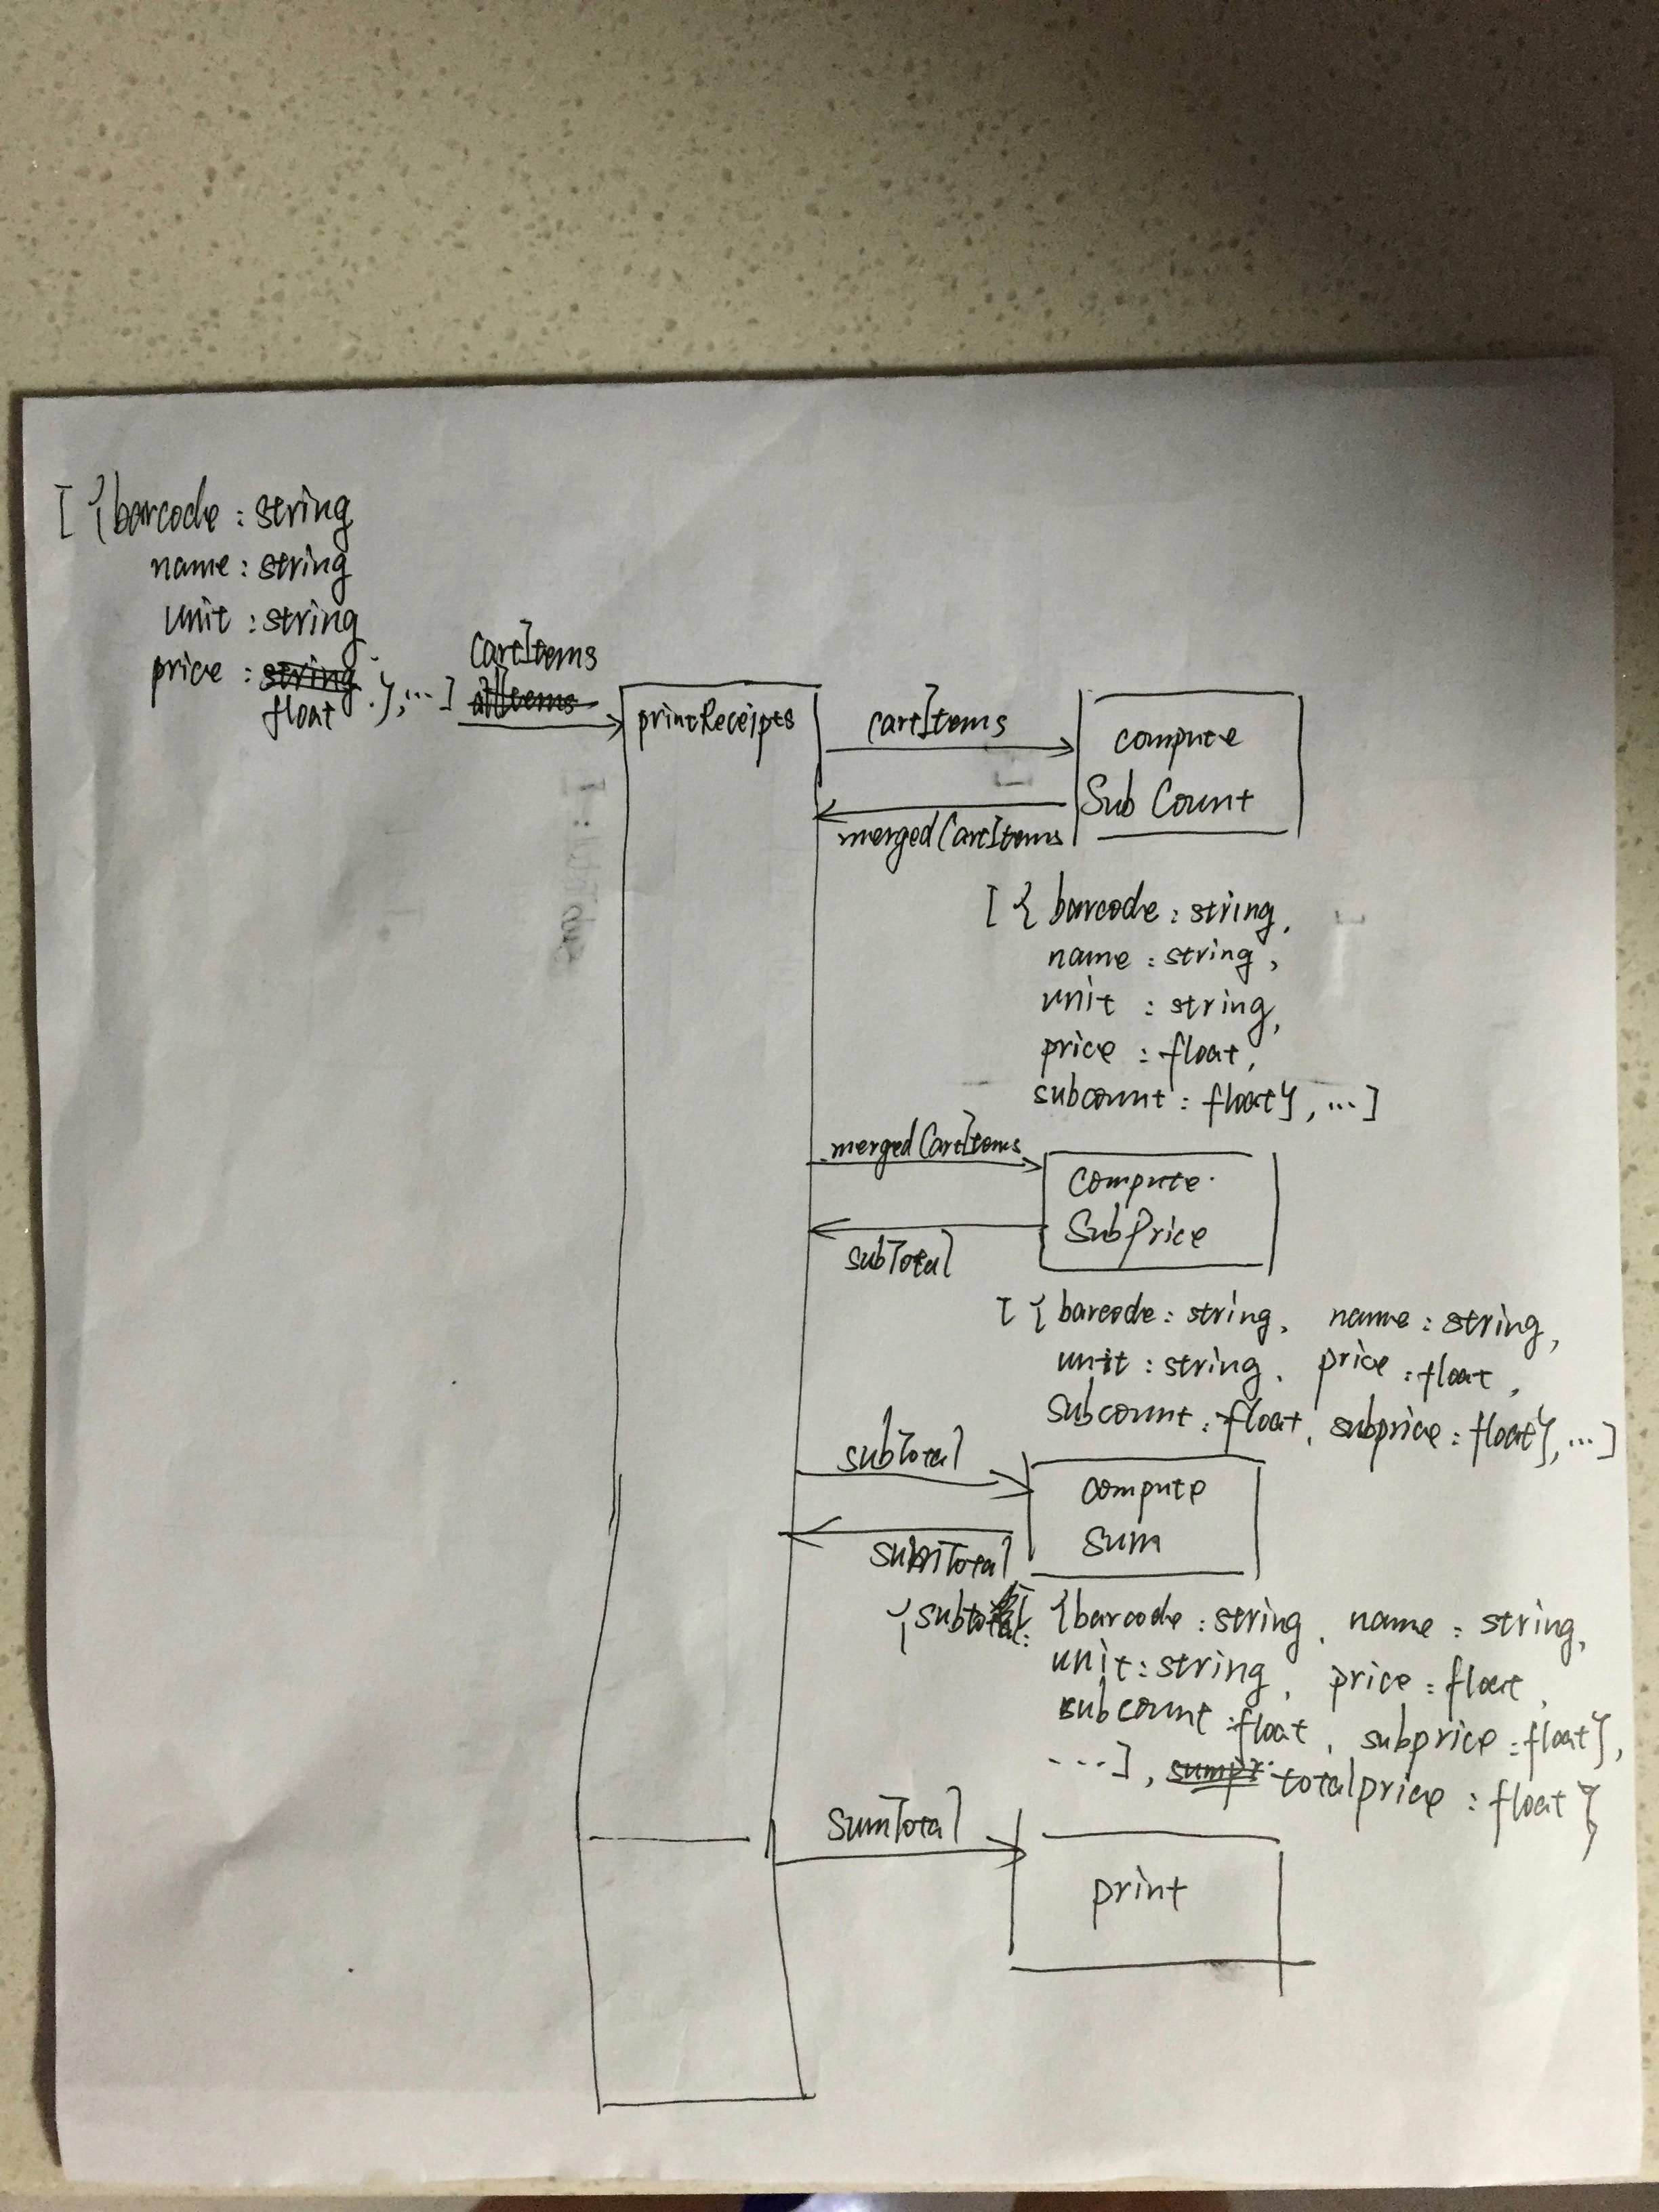 [{barcode : string
name : string
unit : string
price : string
float }, ...]
cartItems
allItems
printReceipts
cartItems
compute
Sub Count
mergedCartItems
[{ barcode : string,
name : string,
unit : string,
price : float,
subcount : float}, ...]
mergedCartItems
compute
SubPrice
subTotal
[{ barcode : string, name : string,
unit : string, price : float,
subcount : float, subprice : float}, ...]
subTotal
compute
sum
sumTotal
{subtotal: {barcode : string, name : string,
unit : string, price : float,
subcount : float, subprice : float},
....], sumpr totalprice : float}
sumTotal
print